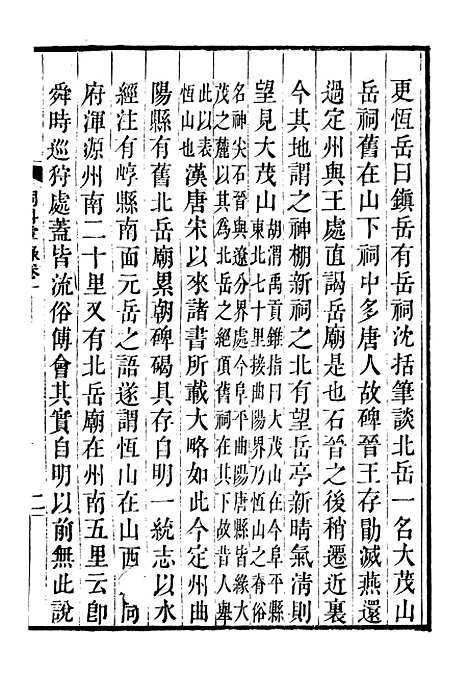 更恆岳曰鎮岳有岳祠沈括筆談北岳一名大茂山
岳祠舊在山下祠中多唐人故碑晉王存勗滅燕還
過定州與王處直謁岳廟是也石晉之後稍遷近裏
今其地謂之神棚新祠之北有望岳亭新晴氣淸則
望見大茂山
胡渭禹貢錐指曰大茂山在今阜平縣
東北七十里接曲陽界乃恆山之脊俗
名神尖石晉與遼分界處今阜平曲陽唐縣皆緣大
茂之麓以其爲岳之絕頂舊祠在其下故昔人舉
此以表
恆山也
漢唐宋以來諸書所載大略如此今定州曲
陽縣有舊北岳廟累朝碑碣具存自明一統志以水
經注有崞縣南面元岳之語遂謂恆山在山西
同
府渾源州南二十里又有北岳廟在州南五里云卽
舜時巡狩處蓋皆流俗傅會其實自明以前無此說
卷一
二